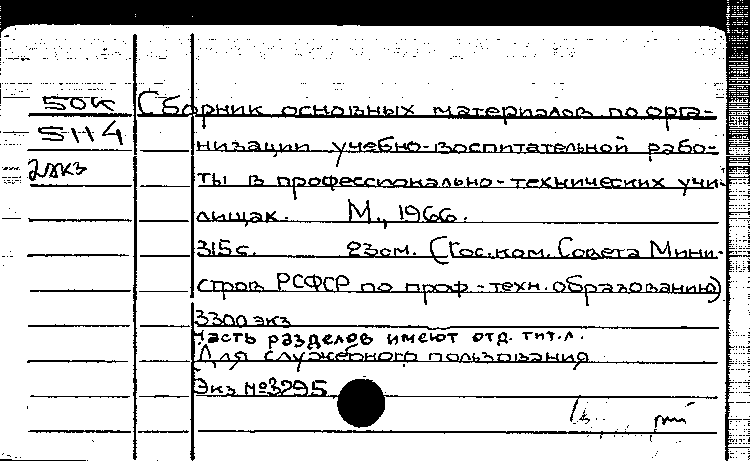 50к Сборник основных материалов по орга-
5114
низации учебно-воспитательной рабо-
2 экз
ты в профессионально-технических учи-
лищах. М., 1966.
315 с. 23 см. (Гос. ком. Совета Мини-
стров РСФСР по проф.-техн. образованию)
3300 экз
Часть разделов имеют отд. тит. л.
Для служебного пользования
Экз №3295